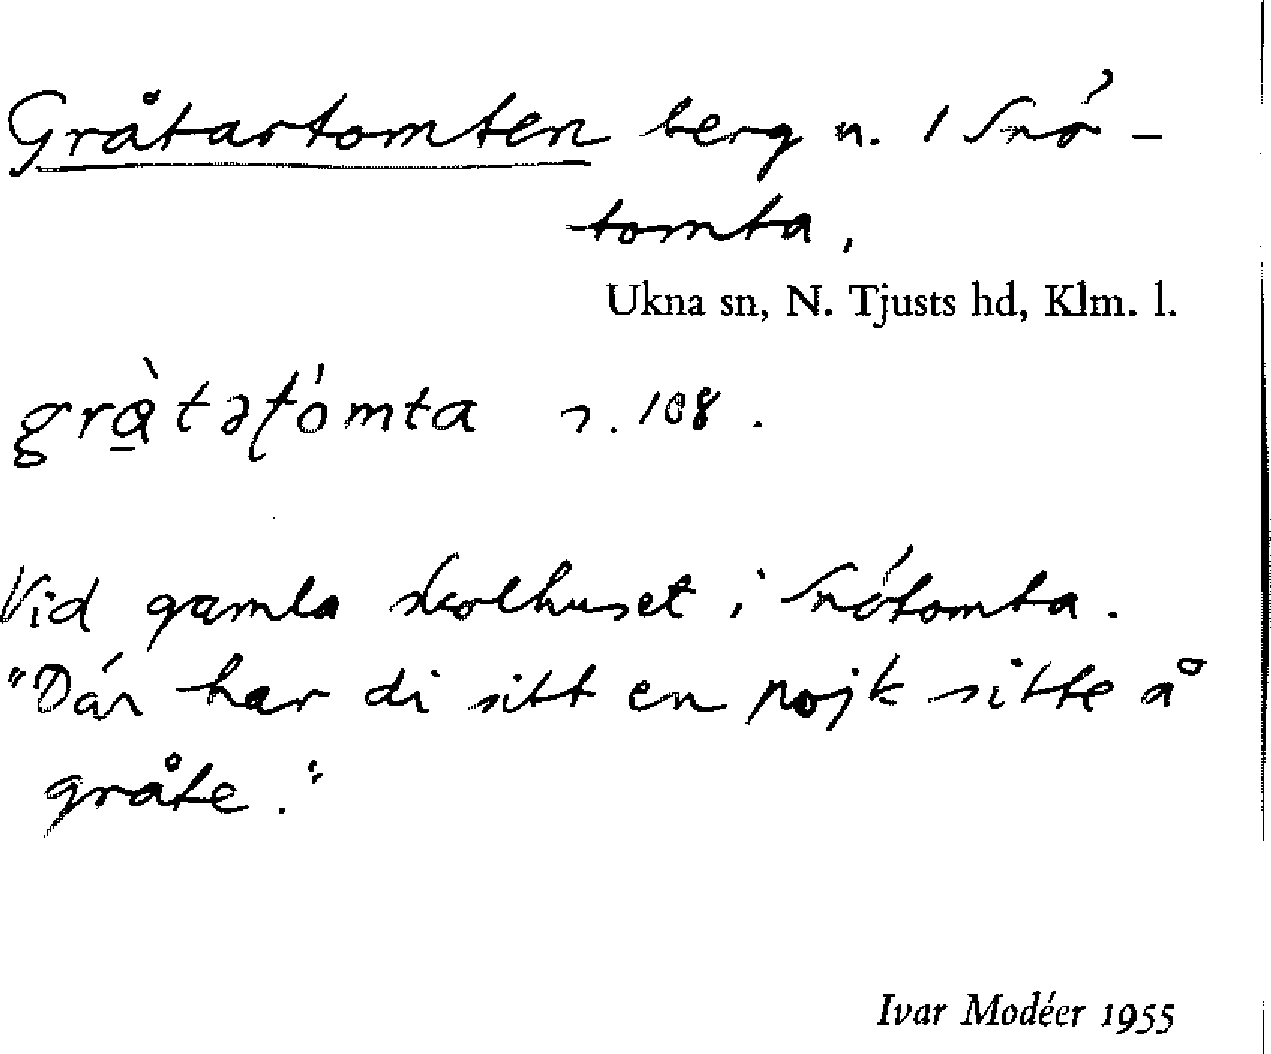 Gråtartomten berg n. 1 Snó-
tomta,
Ukna sn, N. Tjusts hd, Klm. l.
grὰ̠təʈómta s. 108.
Vid gamla skolhuset i Snótomta.
"Dár har di sitt en pojk sitte å
gråte."
Ivar Modéer 1955